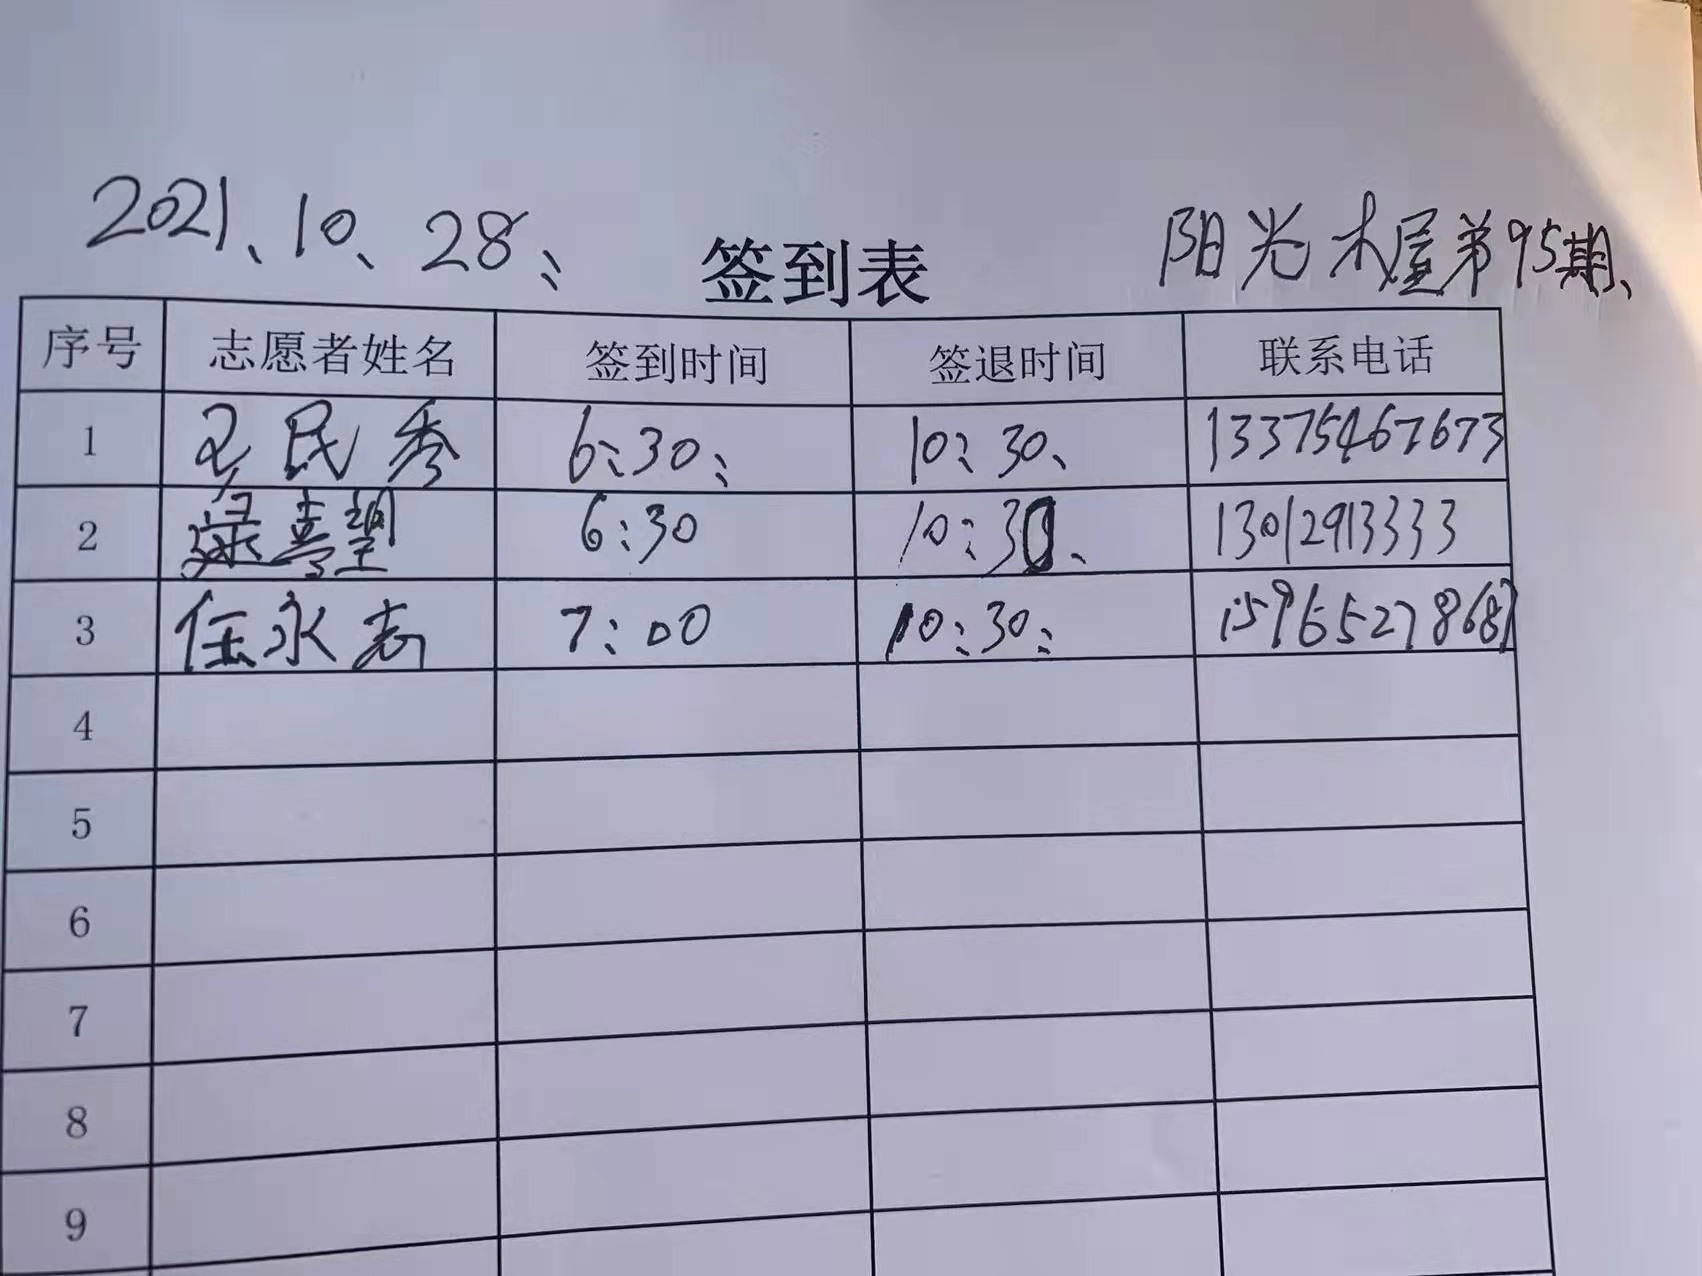 2021、10、28、
签到表
阳光木屋第95期、
序号 志愿者姓名 签到时间 签退时间 联系电话
1 民秀 6:30、 10:30、 13375467673
2 6:30 10:30、 13012913333
3 任永志 7:00 10:30: 15965278687
4
5
6
7
8
9